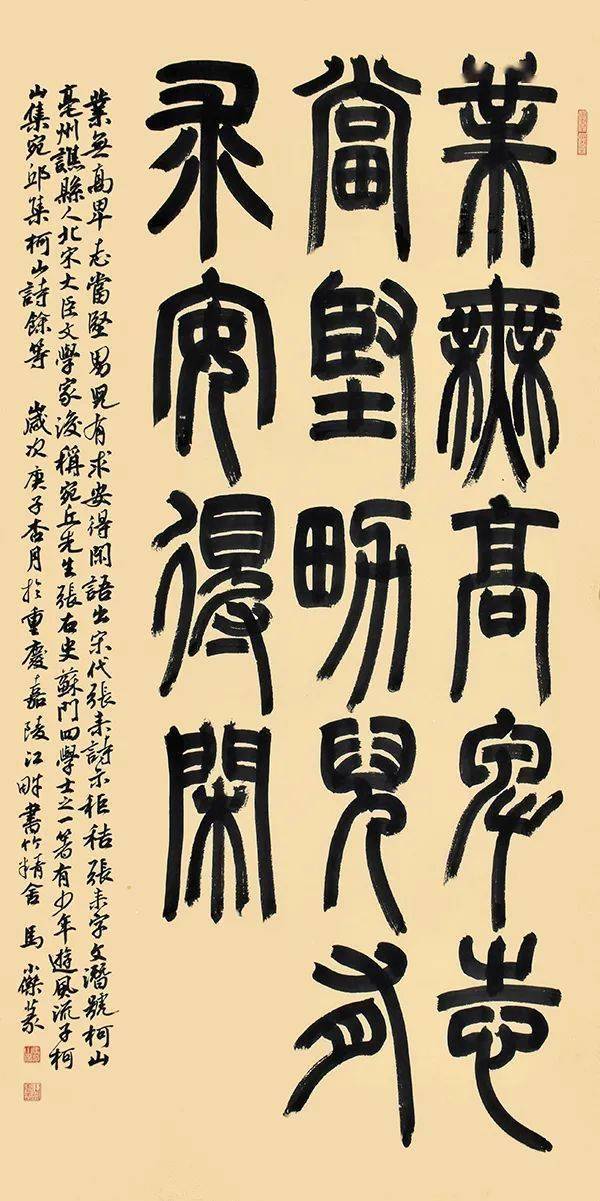 業無高卑志
當堅男兒有
求安得閑
業無高卑志當堅男兒有求安得閑語出宋代張耒詩示秬秸張耒字文潛號柯山
亳州譙縣人北宋大臣文學家後稱宛丘先生張右史蘇門四學士之一著有少年遊風流子柯
山集宛邱集柯山詩餘等 歲次庚子杏月於重慶嘉陵江畔書竹精舍 馬小傑篆